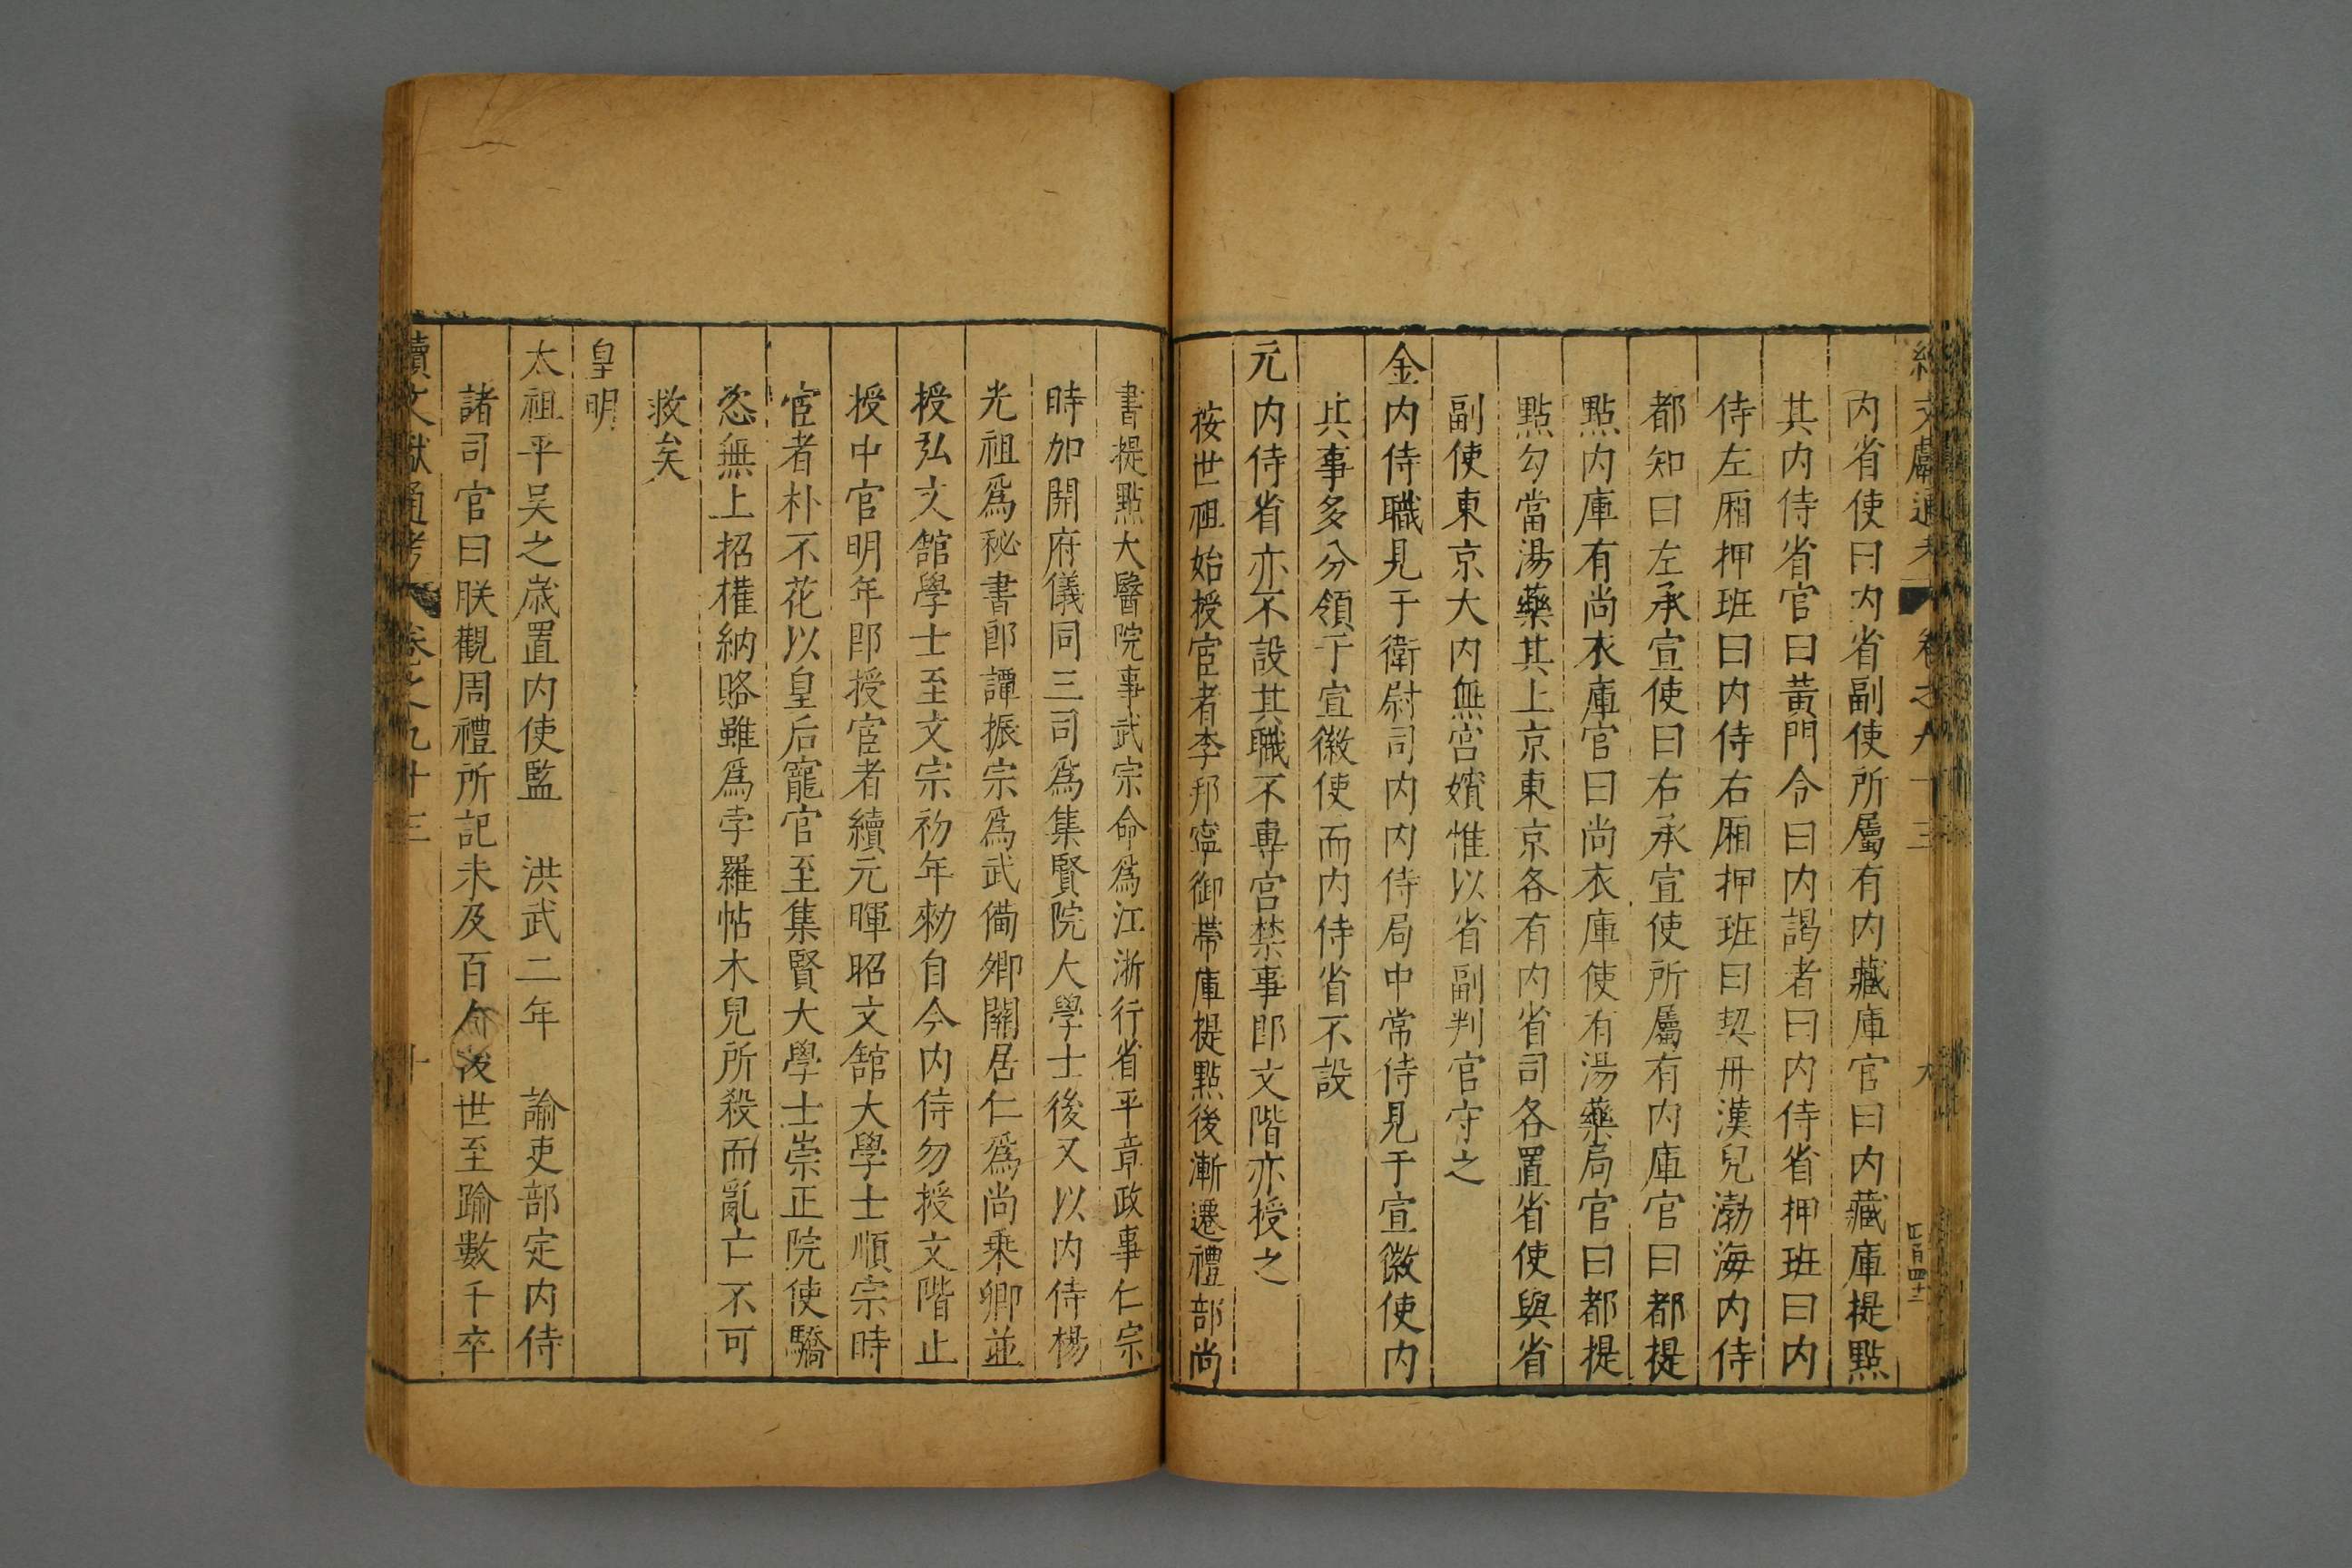 内省使曰内省副使所屬有内藏庫官曰内藏庫提點
其内侍省官曰黃門令曰内謁者曰内侍省押班曰内
侍左廂押班曰内侍右廂押班曰契丹漢兒渤海内侍
都知曰左承宣使曰右承宣使所屬有内庫官曰都提
點内庫有尚衣庫官曰尚衣庫使有湯藥局官曰都提
點勾當湯藥其上京東京各有内省司各置省使與省
副使東京大内無宮嬪惟以省副判官守之
金内侍職見于衛尉司内内侍局中常侍見于宣徽使内
其事多分領于宣徽使而内侍省不設
元内侍省亦不設其職不專宮禁事郎文階亦授之
按世祖始授宦者李邦寧御帶庫提點後漸遷禮部尚
書提點大醫院事武宗命爲江浙行省平章政事仁宗
時加開府儀同三司爲集賢院大學士後又以内侍楊
光祖爲秘書郎譚振宗爲武備卿關居仁爲尚乘卿並
授弘文館學士至文宗初年勑自今内侍勿授文階止
授中官明年郎授宦者續元暉昭文舘大學士順宗時
宦者朴不花以皇后寵官至集賢大學士崇正院使驕
恣無上招權納賂雖爲孛羅帖木兒所殺而亂亡不可
救矣
皇明
太祖平吴之歲置内使監 洪武二年 諭吏部定内侍
諸司官曰朕觀周禮所記未及百人後世至踰數千卒
續文獻通考 卷之九十三 十